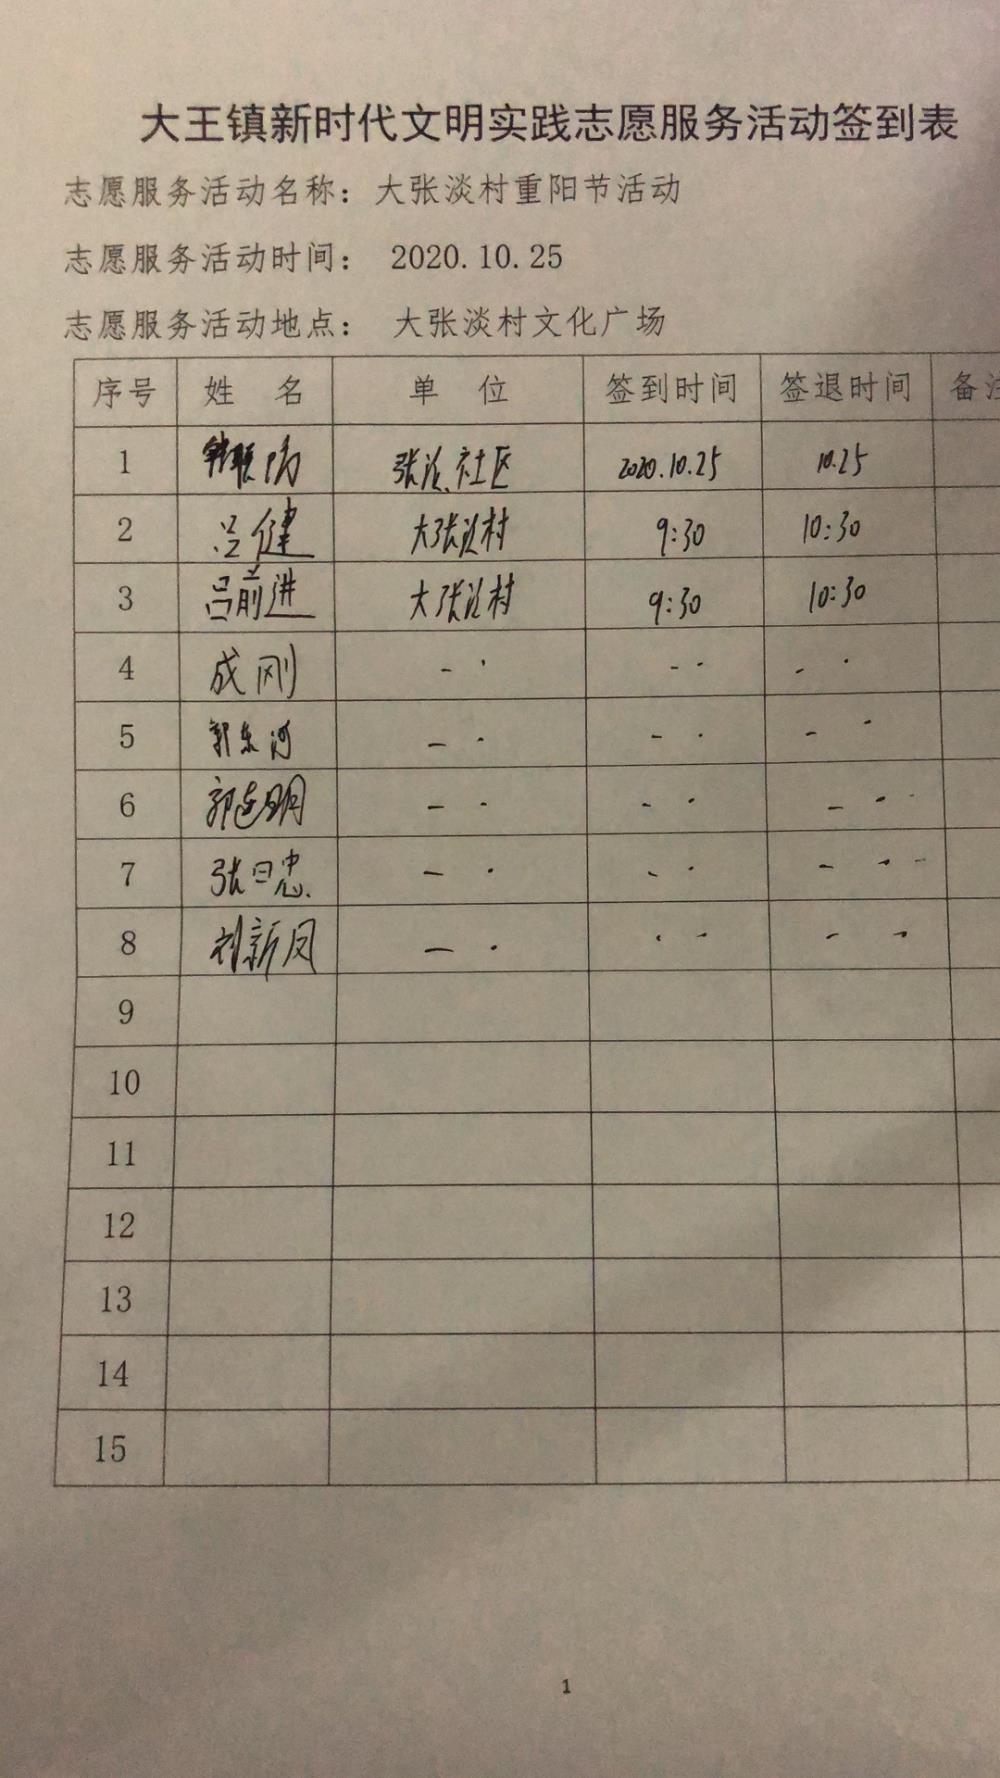 大王镇新时代文明实践志愿服务活动签到表
志愿服务活动名称：大张淡村重阳节活动
志愿服务活动时间： 2020.10.25
志愿服务活动地点： 大张淡村文化广场
序号 姓 名 单 位 签到时间 签退时间 备注
1 张淡社区 2020.10.25 10.25
2 吕健 大张淡村 9:30 10:30
3 吕前进 大张淡村 9:30 10:30
4 成刚
5 郭东河
6 郭建明
7 张日忠
8 刘新凤
9
10
11
12
13
14
15
1